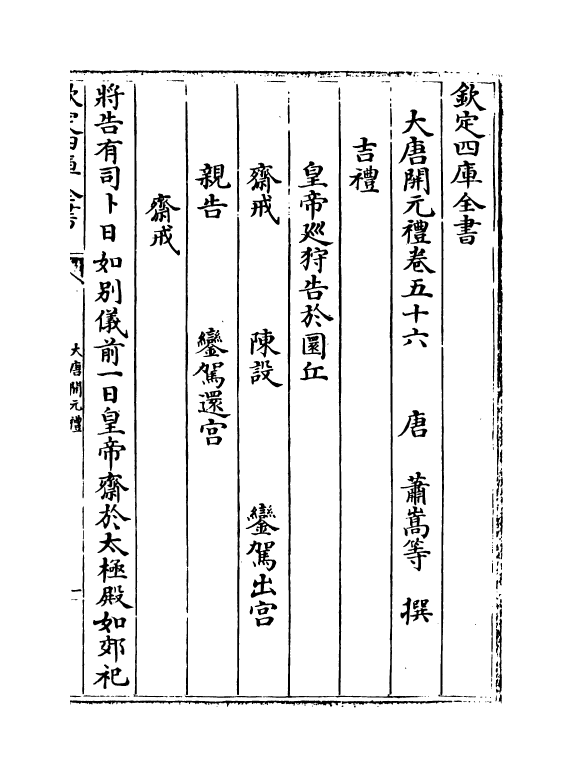 欽定四庫全書
大唐開元禮卷五十六　　唐　蕭嵩等　撰
吉禮
皇帝廵狩告於圜丘
齋戒　　陳設　　鑾駕出宫
親告　　鑾駕還宫
齋戒
將告有司卜日如别儀前一日皇帝齋於太極殿如郊祀
欽定四庫全書
大唐開元禮
一